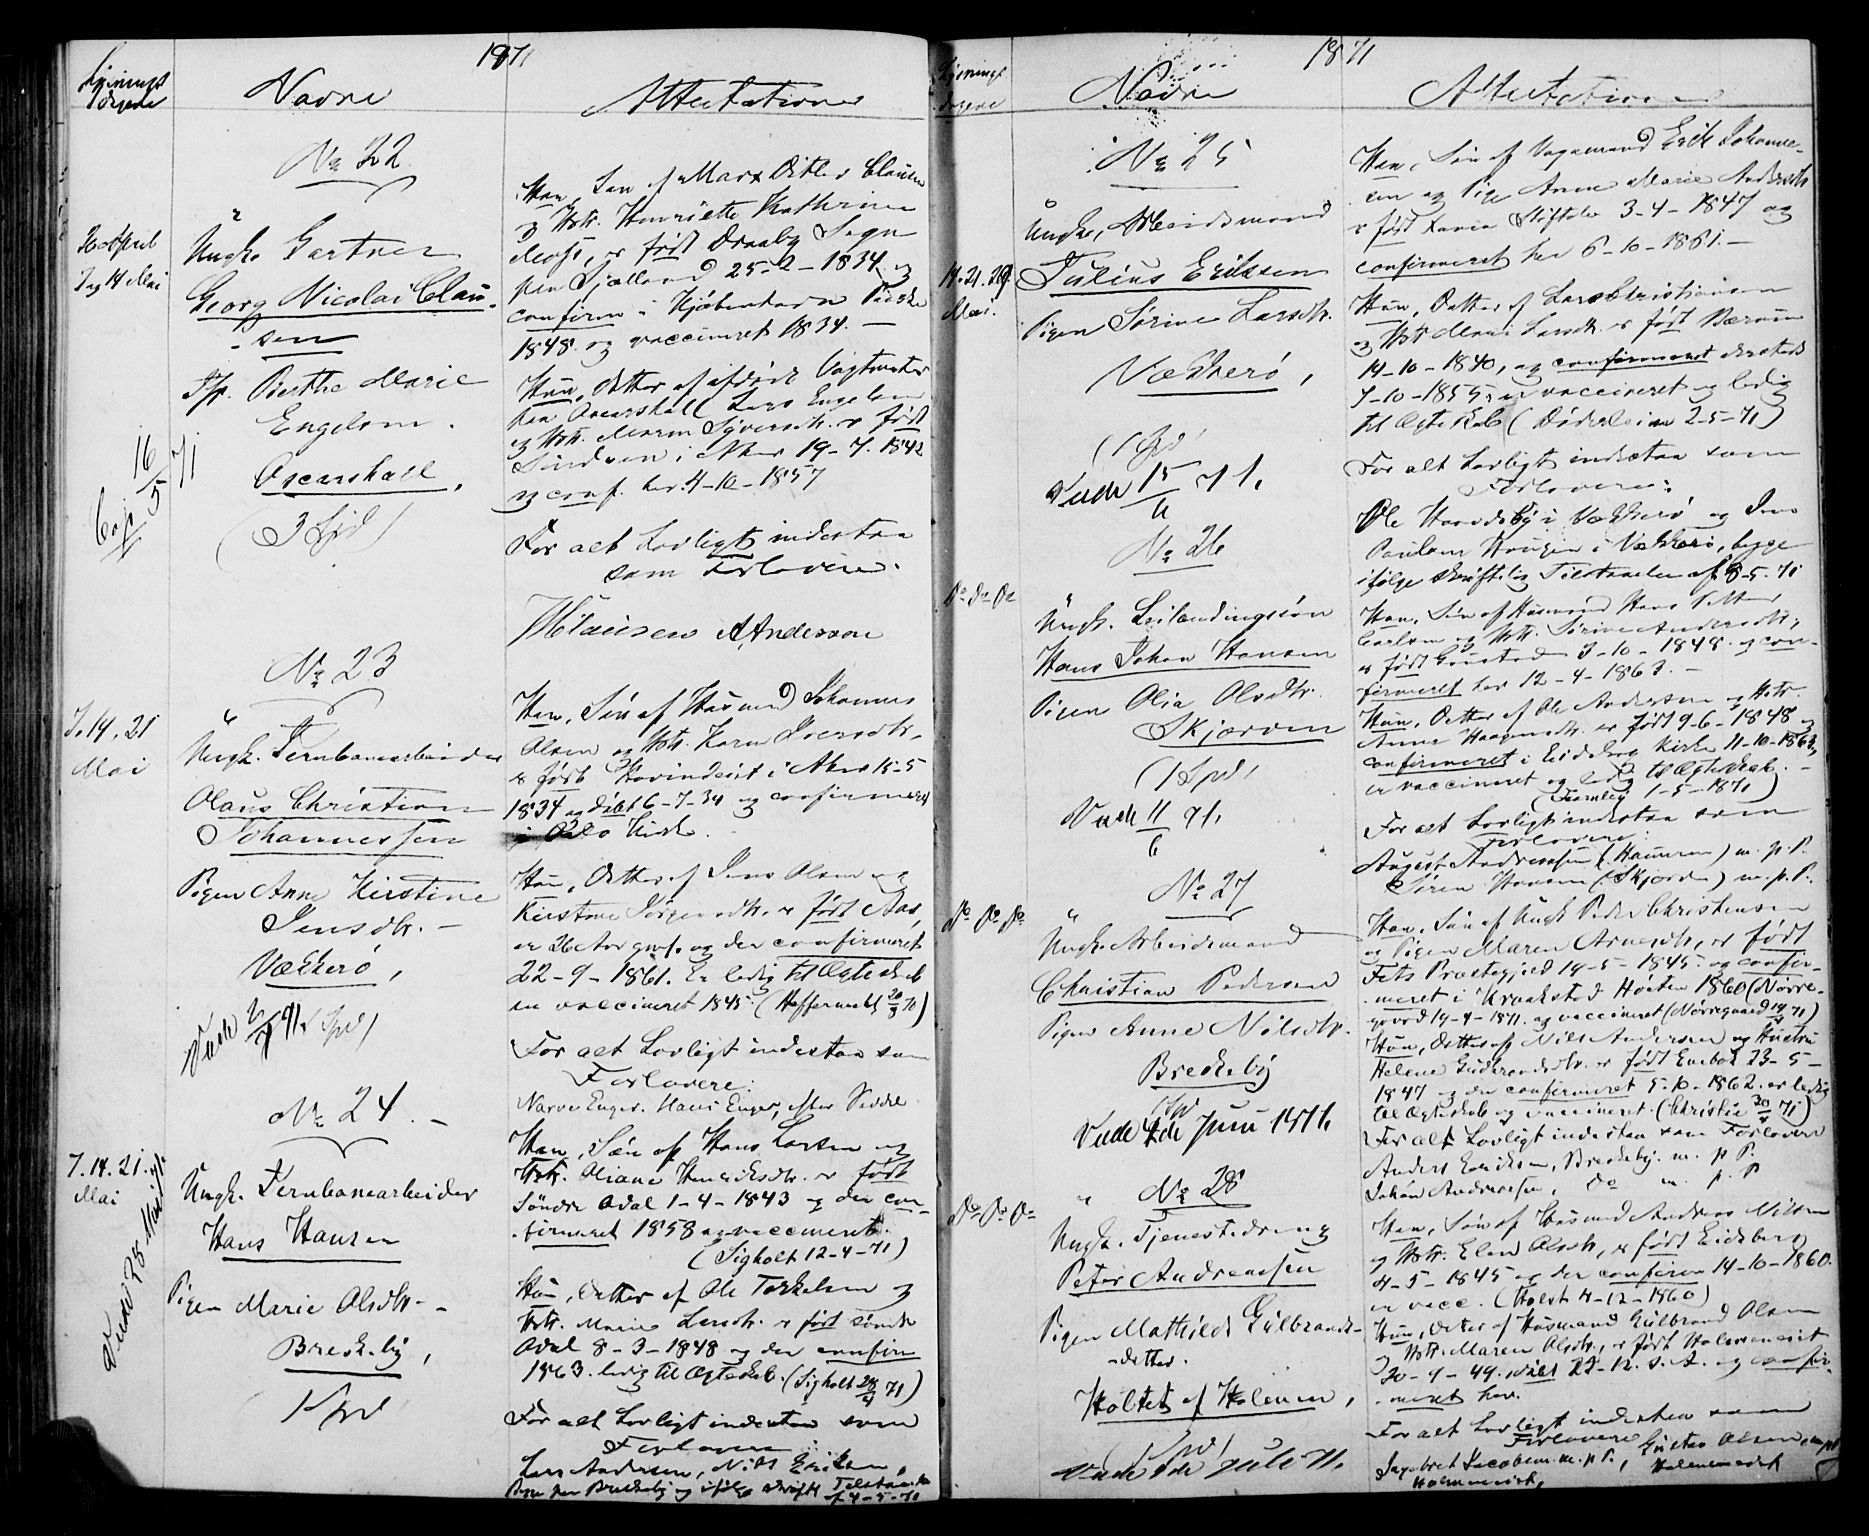 1871
Lysnings
dagene
Navne
Attestationer
No 22
30 April
7 og 14 Mai
Ungk. Gartner
Georg Nicolai Clau-
sen
Berthe Marie
Engelsen.
Oscarshall,
(3 Spd)
Cop 16/5 71
Han, Søn af Marx Ditlev Clausen
og Hstr. Henriette Kathrine
født Draaby Sogn
paa Sjælland 25-2-1834 og
confirm i Kjøbenhavn Paaske
1848. og vaccineret 1834. —
Hun, Datter af afdøde Vagtmester
paa Oscarshall Lars Engelsen
og Hstr. Maren Syversdtr. er født
i Aker 19-7-1842
og conf. her 4-10-1857
For alt Lovligt indestaa
som Forlovere.
HClausen AAnderson
No 23
7. 14. 21
Mai
Ungk. Jernbanearbeider
Olaus Christian
Johannessen
Pigen Anne Kirstine
Jensdtr. —
Vækkerø,
Viede 2/7 71 (1 Spd)
Han, Søn af Husmd Johannes
Olsen og Hstr. Karen Iversdtr.
er født Hovindeiet i Aker 15-5
1834 og døbt 6-7-34 og confirmeret
i Oslo Kirke.
Hun, Datter af Jens Olsen og
Kirstine Jørgensdtr. er født Aas,
er 26 Aar gml. og der confirmeret
22-9-1861. Er ledig til Ægteskab
en vaccineret 1845. (Heffermehl 20/3 71)
For alt Lovligt indestaa som
Forlovere:
Narve Enger. Hans Enger,
No 24. —
7. 14. 21.
Mai
Viede 28 Mai 71.
Ungk. Jernbanearbeider
Hans Hansen
Pigen Marie Olsdtr. —
Breskeby,
1 Spd
Han, Søn af Hans Larsen og
Hstr. Oliane Henriksdtr. er født
Søndre Odal 1-4-1843 og der con-
firmeret 1858 og vaccineret.
(Sigholt 12-4-71)
Hun, Datter af Ole Torkelsen og
Hstr. Marie Larsdtr. er født søndre
Odal 8-3-1848 og der confirm
1863. ledig til Ægteskab. (Sigholt 28/4 71)
For alt Lovligt indestaa som
Forlovere
Lars Andersen, Nils Eriksen,
Begge paa Breskeby og ifølge skriftl Tilstaaelse
af 4-5-71
1871
Lysnings
dagene
Navne
Attestationer
No 25
14. 21. 28
Mai.
Ungk, Arbeidsmand
Julius Eriksen
Pigen Sørine Larsdtr.
Vækkerø,
(1 Spd)
Viede 15/6 71.
Han, Søn af Erik Johanne-
sen og Pige Anne Marie Andersdtr.
er født 3-4-1847 og
confirmeret her 6-10-1861. —
Hun, Datter af Lars Christiansen
og Hstr Larsdtr. er født Bærum
14-10-1840, og confirmeret dersteds
7-10-1855, er vaccineret og ledig
til Ægteskab (Døderlein 2-5-71)
For alt Lovligt indestaa som
Forlovere:
Ole i Vækkerø og Jens
Paulsen Haugen i Vækkerø, begge
ifølge skriftlig Tilstaaelse af 8-5-71
No 26
Do Do Do
Ungk. Leilændingssøn
Hans Johan Hansen
Pigen Olia Olsdtr.
Skjærven
(1 Spd)
Viede 11/6 71.
Han, Søn af Husmand Hans Petter
Carlsen og Hstr. Sørine Andersdtr.
er født Gaustad 3-10-1848. og con-
firmeret her 12-4-1863. —
Hun, Datter af Ole Andersen og Hstr.
Anne Haagensdtr. er født 9-6-1848 og
confirmeret i Eidsberg Kirke 11-10-1863,
er vaccineret og ledig til Ægteskab. —
(Fearnley 1-5-1871)
For alt Lovligt indestaa som
Forlovere:
August Andreassen m. p. P.
Søren Hansen (Skjærven) m. p. P.
No 27
Do Do Do
Ungk. Arbeidsmand
Christian Pedersen
Pigen Anne Nilsdtr.
Breskeby
1 Spd
Viede 4de Juni 1871.
Han, Søn af Ungk Peder Christensen
og Pigen Maren Arnesdtr, er født
Fets Præstegjeld 14-5-1845. og confir-
meret i Kraakstad Høsten 1860 (Nørre-
gaard 19-4-1871. og vaccineret (Nørregaard 19/4 71)
Hun, Datter af Nils Andersen og Hustru
Helene Gulbrandsdtr. er født Enebak 23-5-
1847 og der confirmeret 5-10-1862. er ledig
til Ægteskab og vaccineret. (Christie 20/4 71)
For alt Lovligt indestaa som Forlovere
Anders Eriksen, Breskeby. m. p P.
Johan Andreassen, Do m. p. P
No 28
Do Do Do
Ungk. Tjenestedreng
Peter Andreassen
Pigen Mathilde Gulbrands-
datter.
Holtet af Holmen,
1 Spd
Viede 2de Juli 71.
Han, Søn af Husmd Andreas Nilsen
og Hstr. Elen Olsdtr, er født Eidsberg
4-5-1845 og der confirm 14-10-1860.
er vacc. (Holst 4-12-1860)
Hun, Datter af Husmand Gulbrand Olsen
og Hstr. Maren Olsdtr, er født Holmeneiet
30-9-49. døbt 23-12. s. A. og confir-
meret her.
For alt Lovligt indestaa som
Forlovere
Ingebret Jacobsen m. p P., Gustav Olsen, mpP
Holmeneiet, Holmeneiet